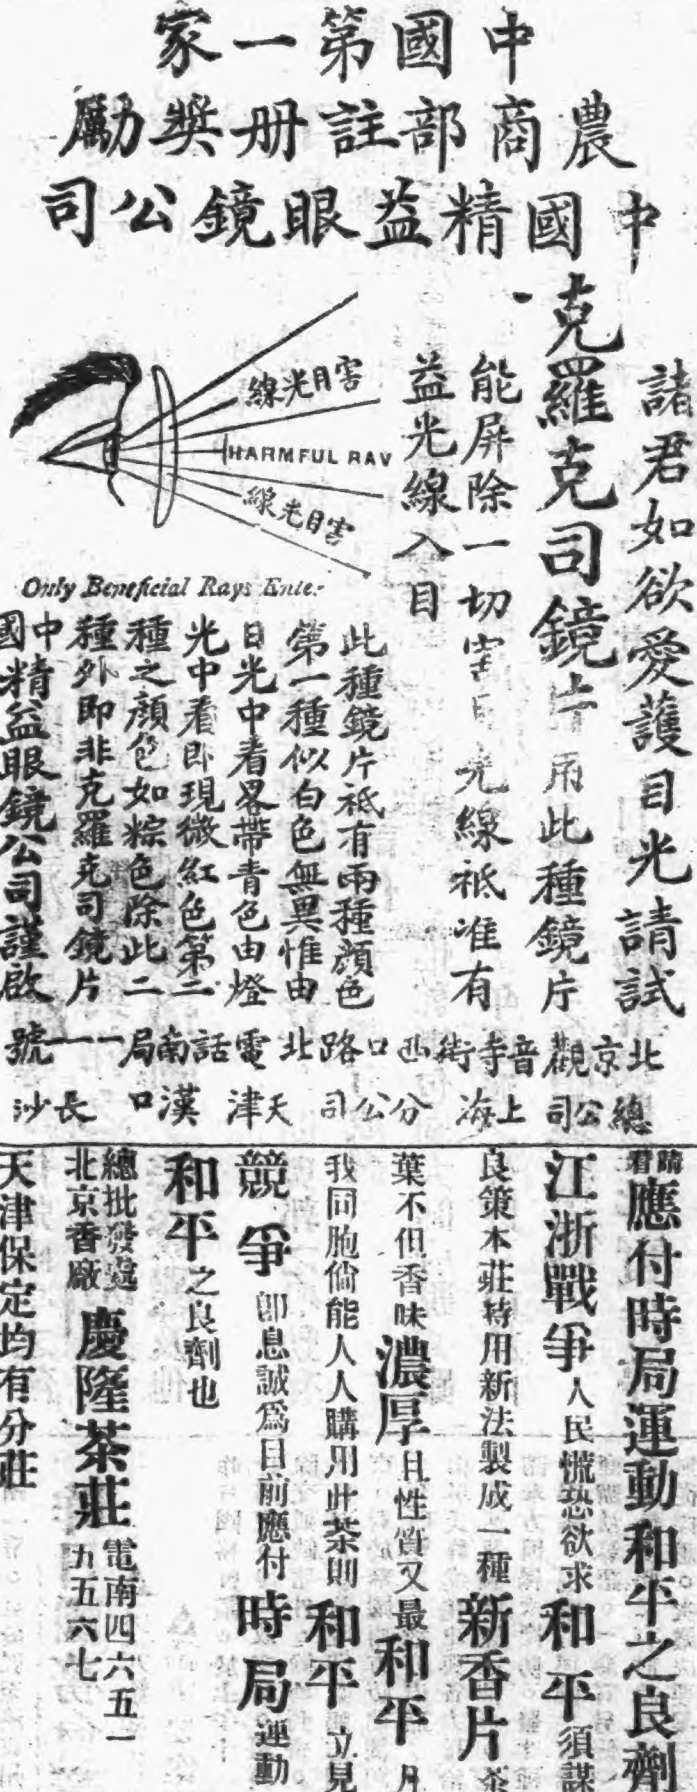 中國第一家
農商部註册奬勵
中國精益眼鏡公司
諸君如欲愛護目光請試
克羅克司鏡片用此種鏡片
能屏除一切害目光線祗准有
益光線入目
害目光線
HARMFUL RAY
害目光線
Only Beneficial Rays Enter
此種鏡片祗有兩種顔色
第一種似白色無異惟由
日光中看畧帶青色由燈
光中看即現微紅色第二
種之顔色如粽色除此二
種外即非克羅克司鏡片
中國精益眼鏡公司謹啟
北京觀音寺街西口路北電話南局一一號
總公司上海分公司天津漢口長沙
請看應付時局運動和平之良劑
江浙戰爭人民慌恐欲求和平須謀
良策本莊特用新法製成一種新香片茶
葉不但香味濃厚且性質又最和平凡
我同胞倘能人人購用此茶則和平立見
競爭即息誠爲目前應付時局運動
和平之良劑也
總批發處
北京香廠
慶隆茶莊
電南四六五一
九五六七
天津保定均有分莊